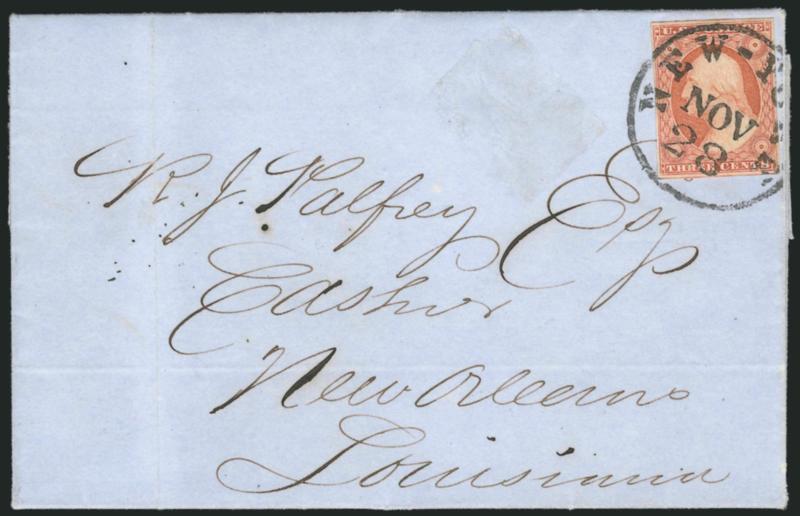 U.S. POSTAGE
NEW-YORK
NOV
28
THREE CENTS
R. J. Palfrey Esq
Cashier
New Orleans
Louisiana